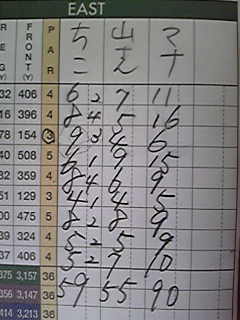 EAST
E G (Y) FRONT (Y) PAR ち マ
ニ ナ
32 406 4 6 2 7 11
16 396 4 8 4 5 16
78 154 3 9 3 4 6
40 508 5 6 1 9 15
32 359 4 8 4 6 9
51 129 3 4 1 4 5
00 475 5 8 2 8 9
39 324 4 5 2 5 9
37 406 4 5 2 7 10
375 3,157 36 59 55 90
356 3,147 36
414 3,213 36